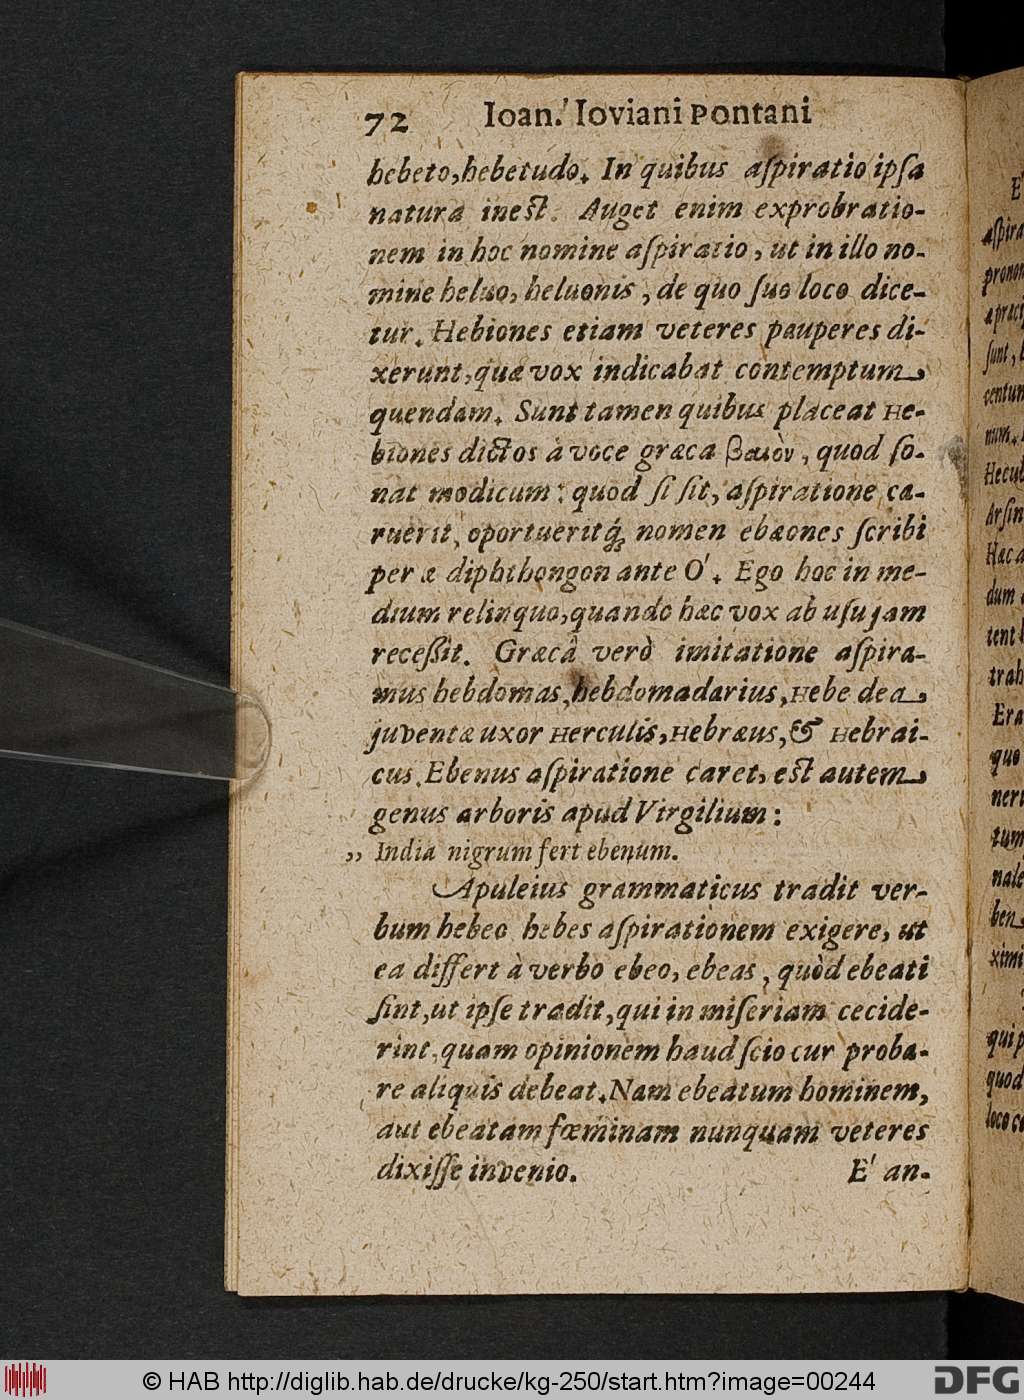 72 Ioan. Ioviani Pontani
hebeto, hebetudo. In quibus aſpiratio ipſa
natura ineſt. Auget enim exprobratio-
nem in hoc nomine aſpiratio, ut in illo no-
mine heluo, heluonis, de quo ſuo loco dice-
tur. Hebiones etiam veteres pauperes di-
xerunt, quæ vox indicabat contemptum
quendam. Sunt tamen quibus placeat He-
biones dictos à voce græca βαιὸν, quod ſo-
nat modicum: quod ſi ſit, aſpiratione ca-
ruerit, oportueritq́; nomen ebæones ſcribi
per æ diphthongon ante O'. Ego hoc in me-
dium relinquo, quando hæc vox ab uſu jam
receßit. Græcâ verò imitatione aſpira-
mus hebdomas, hebdomadarius, Hebe dea,
juventæ uxor Herculis, Hebræus, & Hebrai-
cus. Ebenus aſpiratione caret, eſt autem
genus arboris apud Virgilium:
„ India nigrum fert ebenum.
Apuleius grammaticus tradit ver-
bum hebeo hebes aſpirationem exigere, ut
ea differt à verbo ebeo, ebeas, quòd ebeati
ſint, ut ipſe tradit, qui in miſeriam cecide-
rint, quam opinionem haud ſcio cur proba-
re aliquis debeat. Nam ebeatum hominem,
aut ebeatam fœminam nunquam veteres
dixiſſe invenio. E' an-
E'
aſpira
pronom
ſunt,
ventum
num.
Hecub
Arſin
Hæc a
dum
tent
trah
Era
quo
neri
tum
nale
ben
ximi
qui p
quod
loco c
© HAB http://diglib.hab.de/drucke/kg-250/start.htm?image=00244
DFG